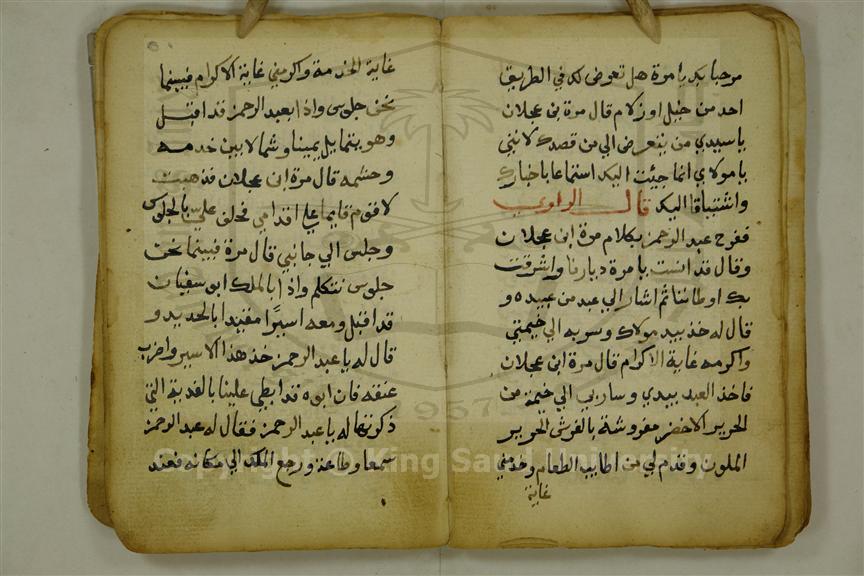 مرحبا بك يا مرة هل تعرض لك في الطريق
احد من خيل او زلام قال مرة بن عجلان
يا سيدي من يتعرض الي من قصدك لانني
يا مولاي انما جيئت اليك استماعا باخبارك
واشتياقا اليك قال الراوي
ففرح عبد الرحمز بكلام مرة ابن عجلان
وقال قد انست يا مرة ديارنا واشرقت
بك اوطاننا ثم اشار الي عبد من عبيده و
قال له خذ بيد مولاك وسر به الي خيمتي
واكرمه غاية الاكرام قال مرة ابن عجلان
فاخذ العبد بيدي وسار بي الي خيمة من
الحرير الاخضر مفروشة بالفرش الحرير
الملون وقدم لي من اطايب الطعام وخدمني
غاية
غاية الخدمة واكرمني غاية الاكرام فبينما
نحن جلوس واذا بعبد الرحمز قد اقبل
وهو يتمايل يمينا وشمالا بين خدمه
وحشمه قال مرة ابن عجلان فذهبت
لاقوم قايما علي اقدامي فحلف علي بالجلوس
وجلس الي جانبي قال مرة فبينما نحن
جلوس نتكلم واذا بالملك ابو سفيان
قد اقبل ومعه اسيرا مقيدا بالحديد و
قال له يا عبد الرحمز خذ هذا الاسير واضرب
عنقه فان ابوه قد ابطي علينا بالفدية التي
ذكرتها له يا عبد الرحمز فقال له عبد الرحمز
سمعا وطاعة ورجع الملك الي مكانه فعند
1957
Copyright © King Saud University